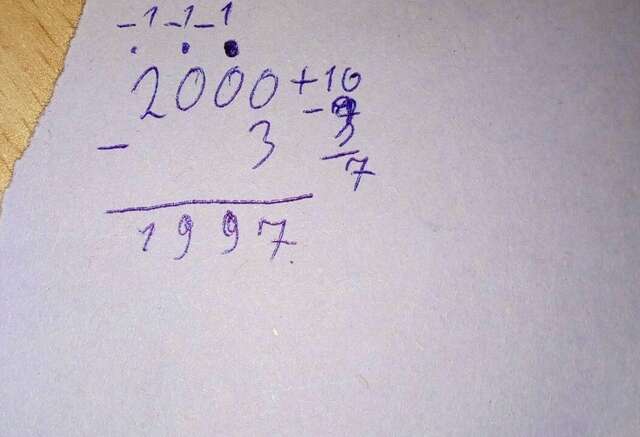 -1 -1 -1
2000 +10
- 3 - 3
7
1997